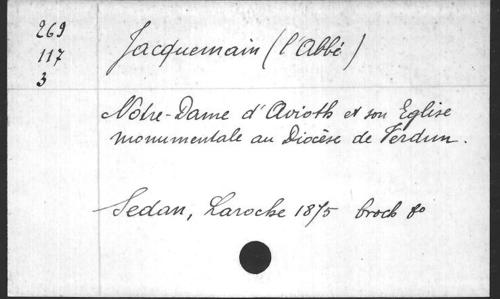 269
117
3
Jacquemain (l'Abbé)
Notre-Dame d'Avioth et son Eglise
monumentale au Diocèse de Verdun.
Sedan, Laroche 1875 broch 8o